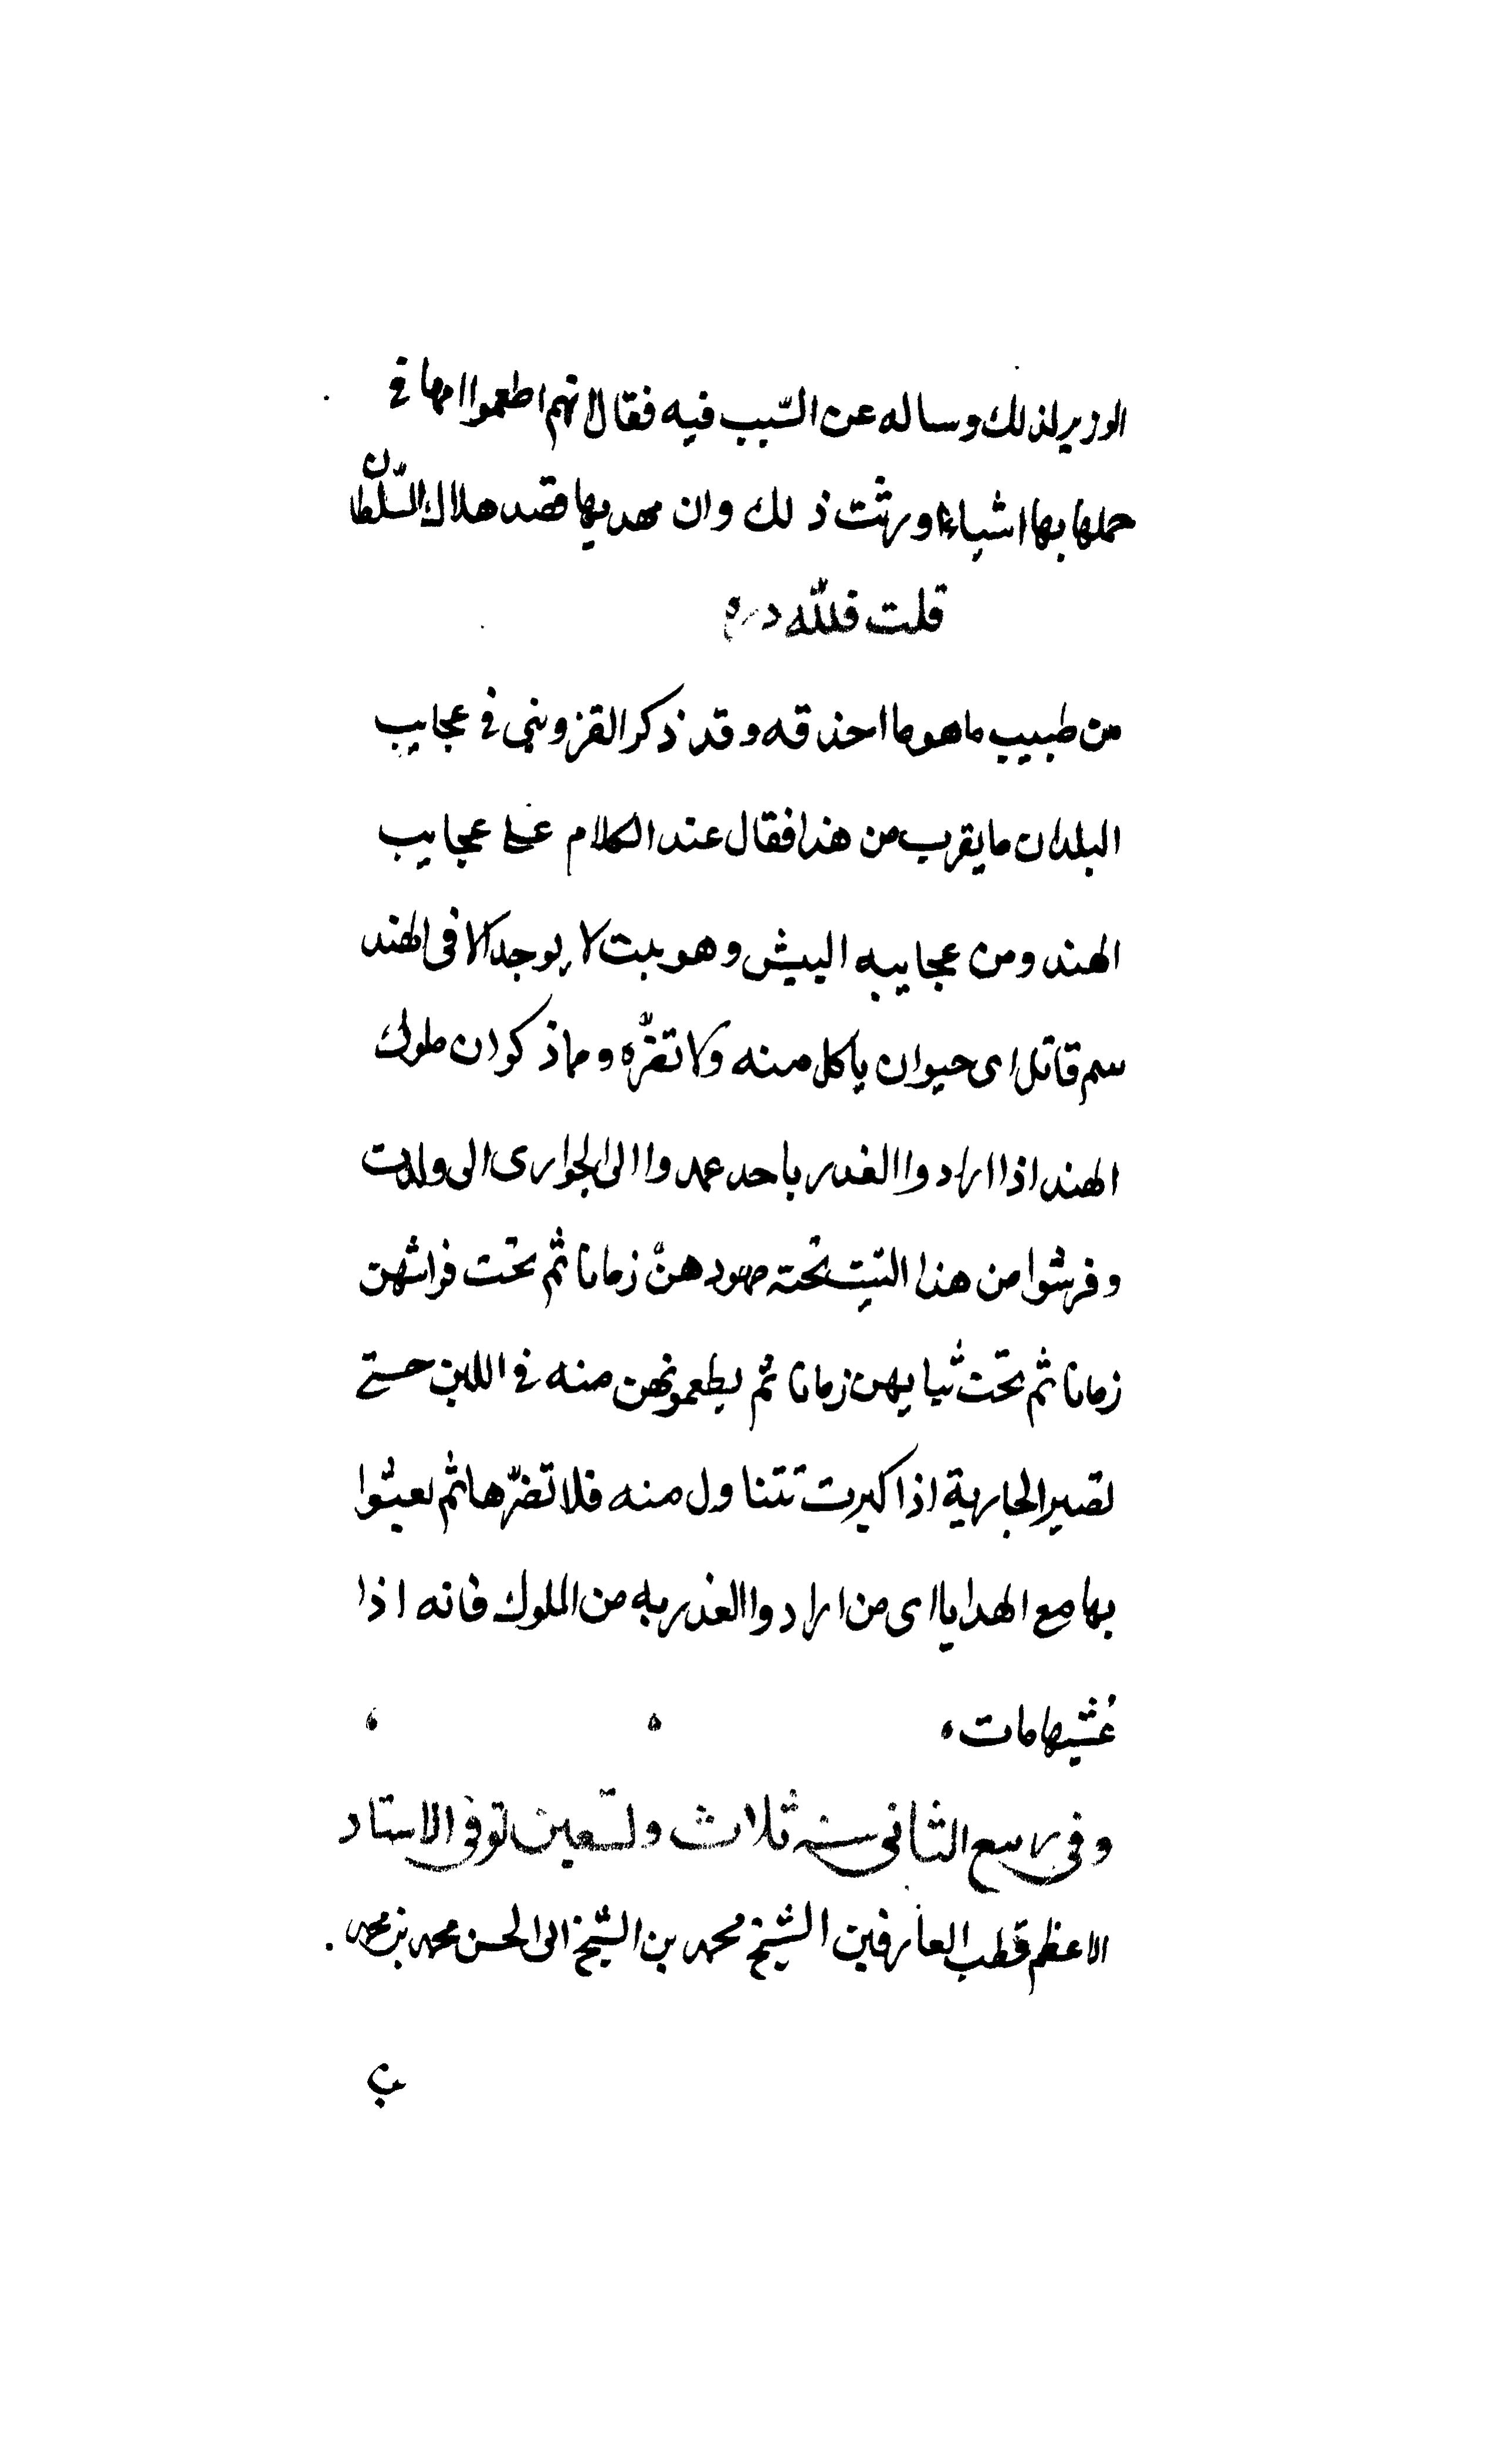 الوزير لذلك وساله عن السّبب فيه فقال لانهم اطعموا امها في
حملها بها اشياء اورثت ذلك وان مهديها قصد هلاك السّلطان
قلت فللّه دره
من طبيب ماهر ما احذقه وقد ذكر القزويني في عجايب
البلدان ما يقرب من هذا فقال عند الكلام على عجايب
الهند ومن عجايبه البيش وهو نبت لا يوجد الا في الهند
سم قاتل اى حيوان ياكل منه ولا تضرّه ومما ذكر ان ملوك
الهند اذا ارادوا الغدر باحد عمدوا الى الجوارى الى ولدت
وفرشوا من هذا النبت تحته مهودهنّ زمانا ثم تحت فراشهن
زمانا ثم تحت ثيابهن زمانا ثم يطعمونهن منه في اللبن حتى
تصير الجارية اذا كبرت تتناول منه فلا تضرّها ثم بعثوا
بها مع الهدايا اى من ارادوا الغدر به من الملوك فانه اذا
غشيها مات
وفي ربيع الثاني سنة ثلاث وتسعين توفي الاستاد
الاعظم قطب العارفين الشيخ محمد بن الشيخ ابى الحسن محمد بن محمد